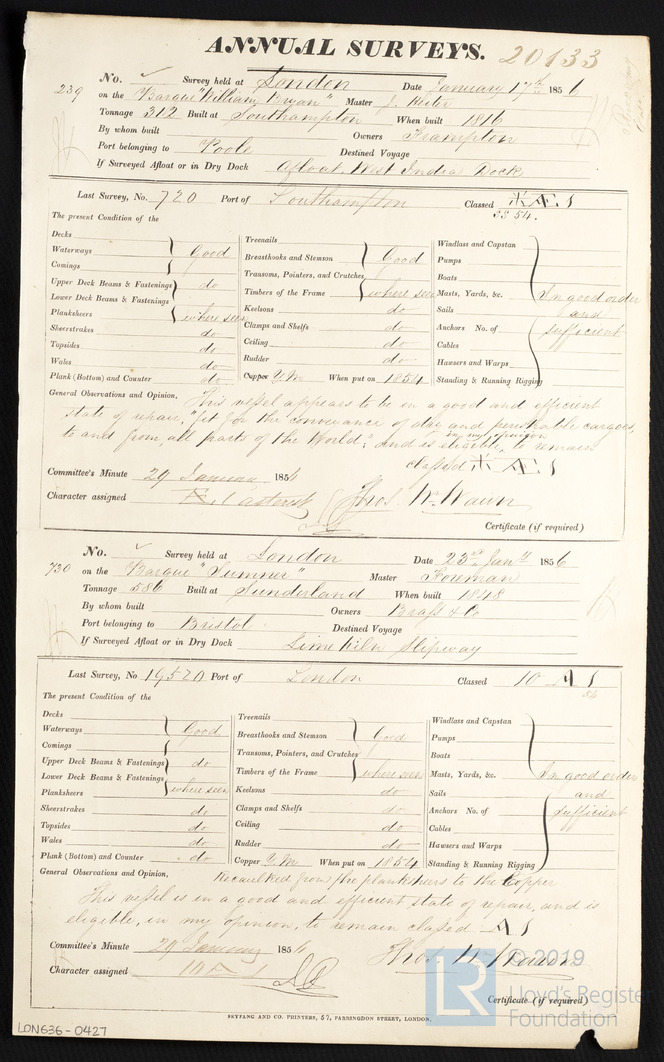 ANNUAL SURVEYS. 20133
239 No. Survey held at London Date January 17th 1856
on the Barque "William Bryan" Master J.
Tonnage 312 Built at Southampton When built 1816
By whom built Owners Frampton
Port belonging to Poole Destined Voyage
If Surveyed Afloat or in Dry Dock Afloat West India Dock
Last Survey, No. 720 Port of Southampton Classed Æ 1
The present Condition of the 54.
Decks
Waterways Good
Comings
Upper Deck Beams & Fastenings do
Lower Deck Beams & Fastenings
Planksheers where seen
Sheerstrakes do
Topsides do
Wales do
Plank (Bottom) and Counter do
Treenails
Breasthooks and Stemson Good
Transoms, Pointers, and Crutches
Timbers of the Frame where seen
Keelsons do
Clamps and Shelfs do
Ceiling do
Rudder do
Copper Y.M. When put on 1854
Windlass and Capstan
Pumps
Boats
Masts, Yards, &c. In good order
Sails and
Anchors No. of sufficient
Cables
Hawsers and Warps
Standing & Running Rigging
General Observations and Opinion, This vessel appears to be in a good and efficient
state of repair, "fit for the conveyance of dry and perishable cargoes,
to and from all parts of the World", and is eligible, in my opinion, to remain
classed Æ 1
Committee's Minute 29 January 1856
Character assigned Æ 1 asterisk Thos. W. Wawn
Certificate (if required)
730 No. Survey held at London Date 23rd Jany 1856
on the Barque "Sumner" Master Foreman
Tonnage 586 Built at Sunderland When built 1848
By whom built Owners Brass & Co
Port belonging to Bristol Destined Voyage
If Surveyed Afloat or in Dry Dock Lime Kiln Slipway
Last Survey, No 19520 Port of London Classed 10 A 1
The present Condition of the 54
Decks
Waterways Good
Comings
Upper Deck Beams & Fastenings do
Lower Deck Beams & Fastenings
Planksheers where seen
Sheerstrakes do
Topsides do
Wales do
Plank (Bottom) and Counter do
Treenails
Breasthooks and Stemson Good
Transoms, Pointers, and Crutches
Timbers of the Frame where seen
Keelsons do
Clamps and Shelfs do
Ceiling do
Rudder do
Copper Y.M. When put on 1854
Windlass and Capstan
Pumps
Boats
Masts, Yards, &c. In good order
Sails and
Anchors No. of sufficient
Cables
Hawsers and Warps
Standing & Running Rigging
General Observations and Opinion, Recaulked from the planksheers to the Copper
This vessel is in a good and efficient state of repair, and is
eligible, in my opinion, to remain classed A 1
Committee's Minute 29 January 1856
Character assigned 10 A 1 Thos. W. Wawn
Certificate (if required)
SEYFANG AND CO. PRINTERS, 57, FARRINGDON STREET, LONDON.
LON636-0427
LR © 2019
Lloyd's Register
Foundation